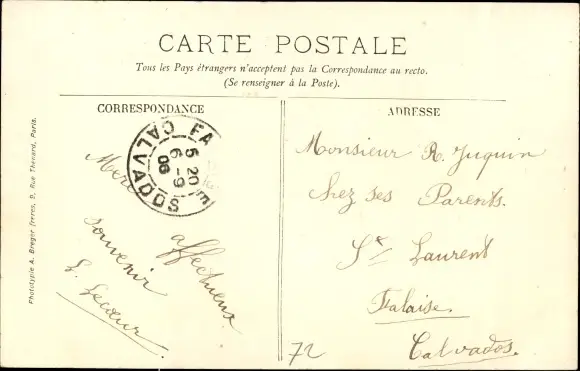 CARTE POSTALE
Tous les Pays étrangers n'acceptent pas la Correspondance au recto.
(Se renseigner à la Poste).
CORRESPONDANCE
ADRESSE
FA
CALVADOS
5 20
6 - 9
06
affectueux
souvenir
L. Lecœur.
Monsieur R. Juquin
chez ses Parents.
St Laurent
Falaise.
Calvados.
72
Phototypie A. Breger frères, 9, Rue Thénard, Paris.